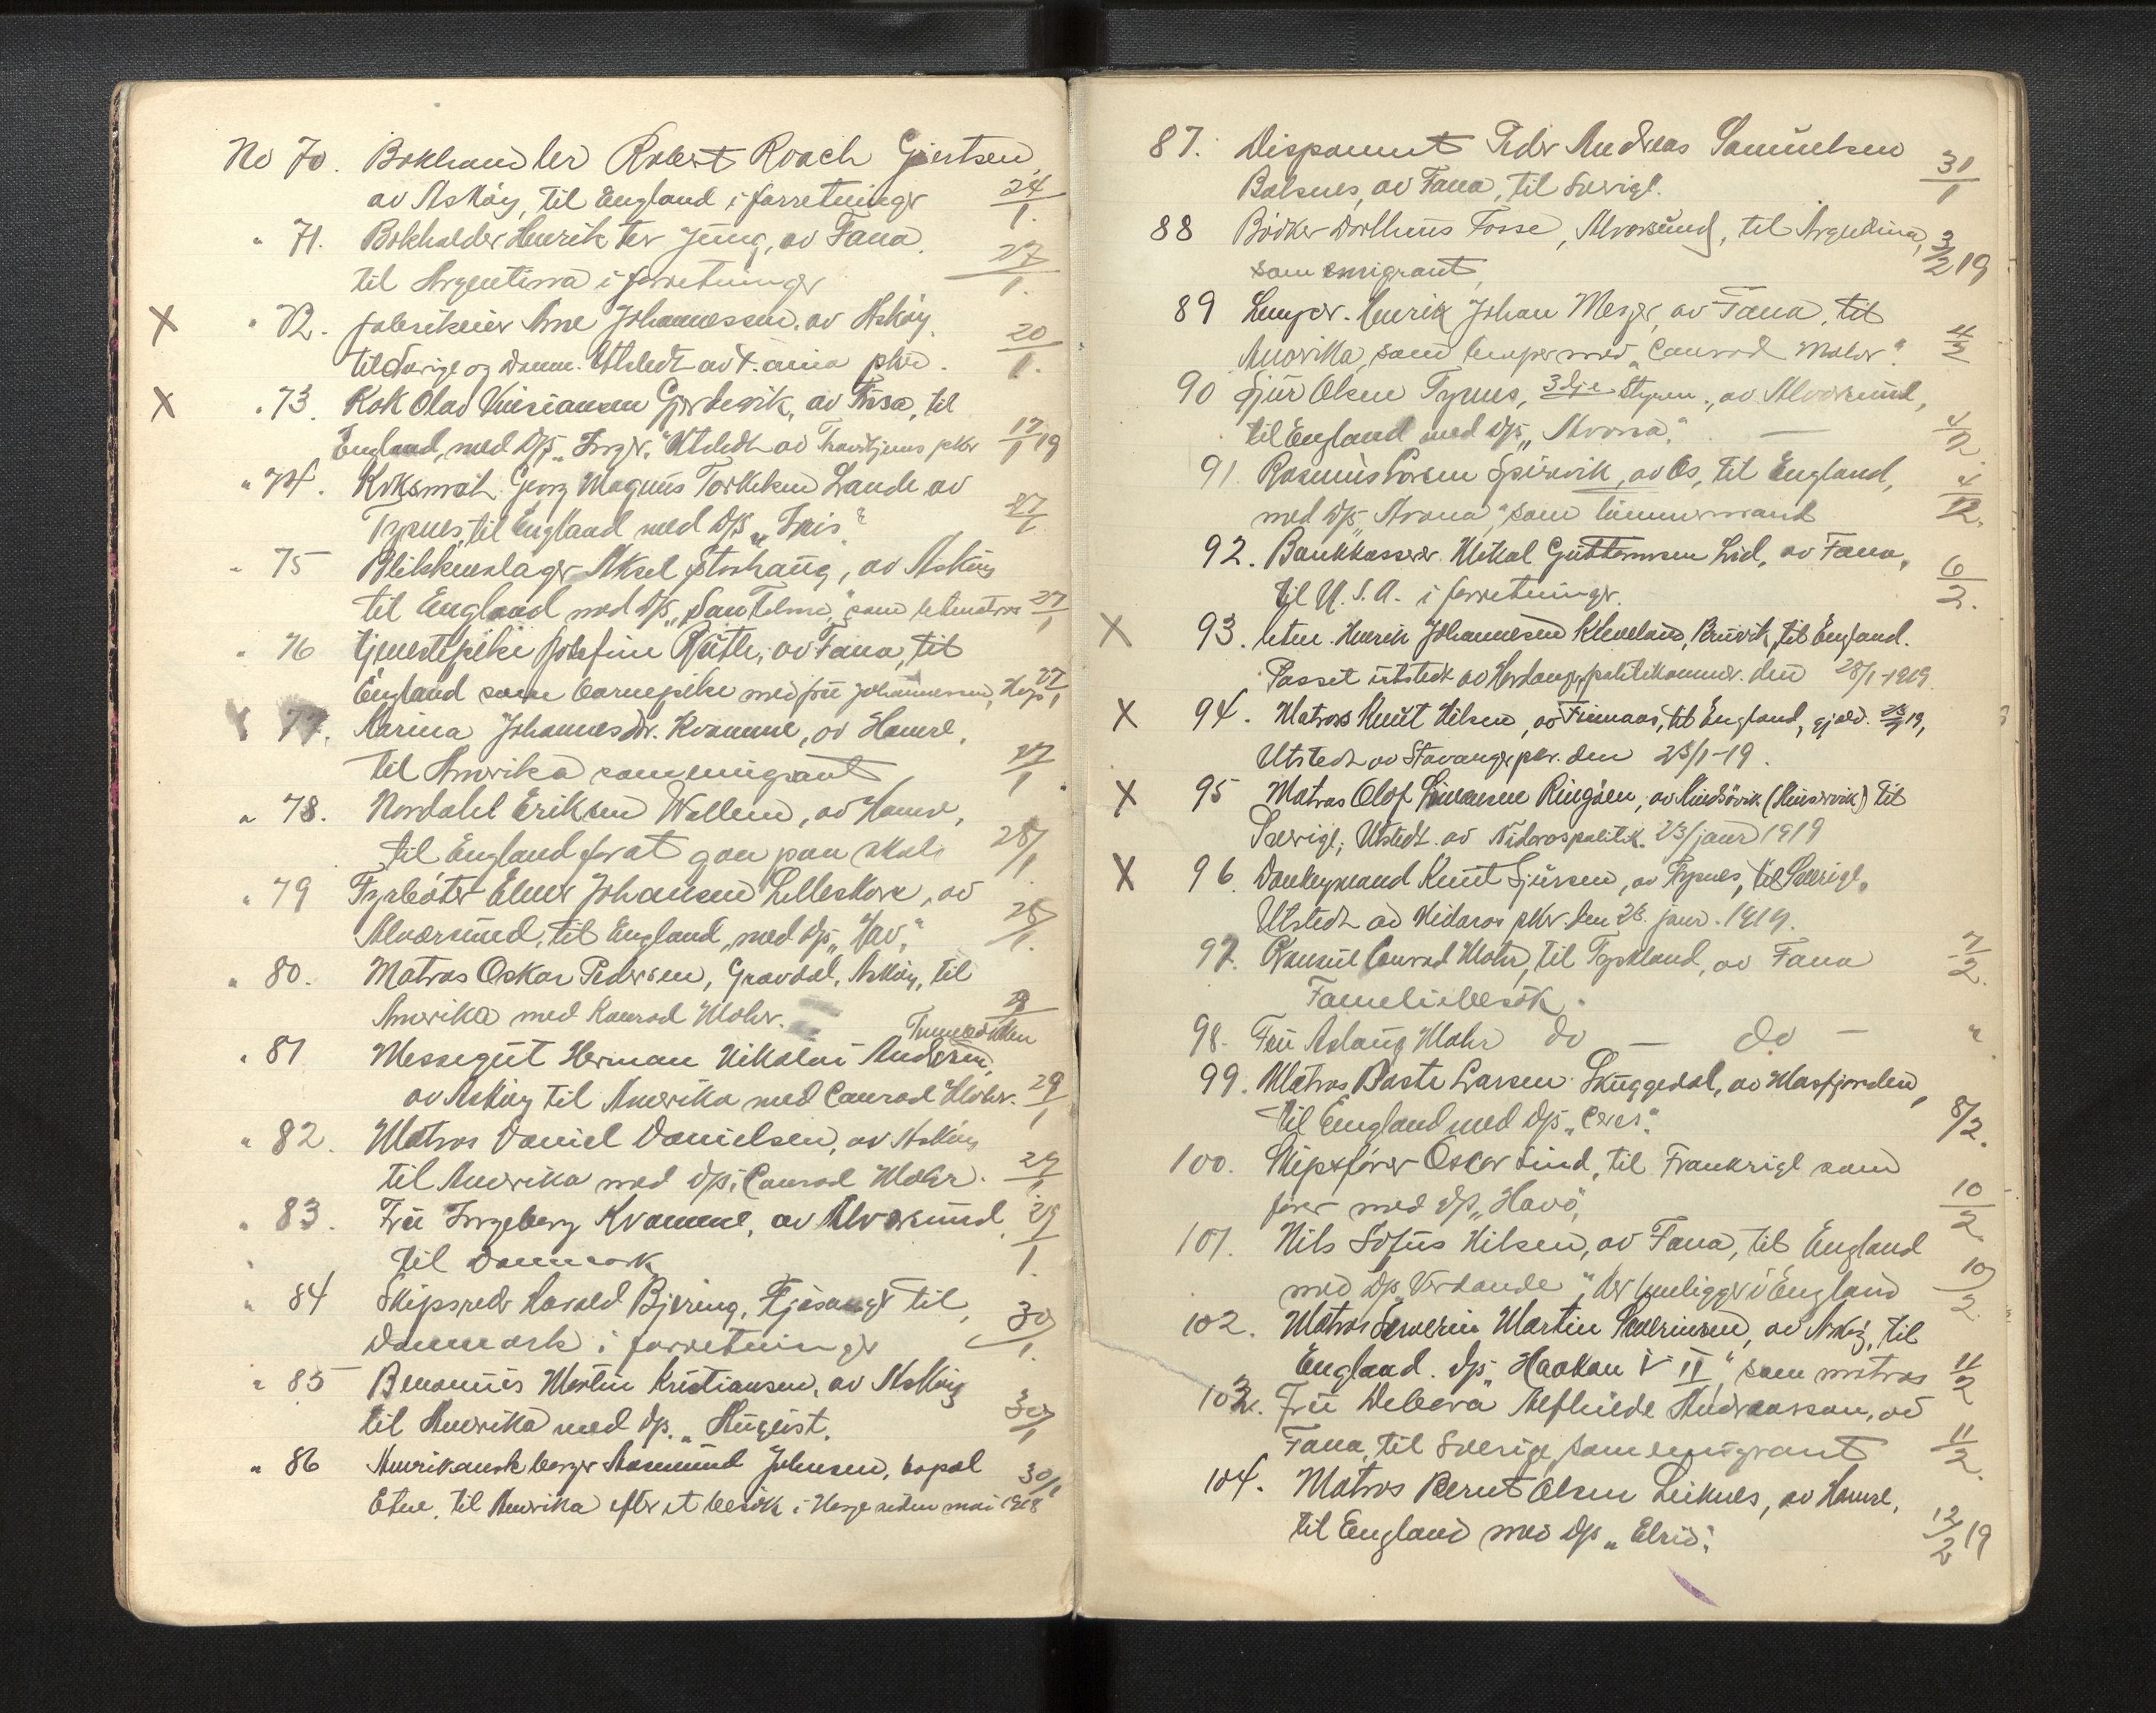 No 70. Bokhandler Robert Roach Gjertsen,
av Askøy, til England i forretninger 24/1.
" 71. Bokholder Henrik ter Jung, av Fana
til Argentina i forretninger 27/1.
X " 72. fabrikeier Arne Johannessen, av Askøy.
til Sverige og Danm. Utstedt av pkr. 20/1.
X " 73. Kok Olav Gjerdevik, av til
England, med d/s "Inger." Utstedt av pkr 17/1 19
" 74. Koksmat Georg Magnus Torkelsen Lande av
Tysnes, til England med D/S "Iris" 27/1
" 75 Blikkenslager Aksel Storhaug, av Askøy
til England med D/S "San Telmo," som letmatros 27/1
" 76 tjenestepike Josefine Rutle, av Fana, til
England som barnepike med fru Johannessen, Hop 27/1
" 77. Marina Johannesdtr. Kvamme, av Hamre,
til Amerika som emigrant 27/1.
" 78. Nordahl Eriksen Wallem, av Hamre,
til England forat gaa paa skole 28/1
" 79 Fyrbøter Elmer Johansen Lilleskare, av
Alversund, til England, med d/s "Hav." 28/1.
" 80. Matros Oskar Pedersen, Gravdal, Askøy, til
Amerika med Konrad Mohr. 28
" 81 Messegut Herman Nikolai Andersen,
av Askøy til Amerika med Conrad Mohr. 29/1
" 82. Matros Daniel Danielsen, av Askøy
til Amerika med D/S, Conrad Mohr. 29/1
" 83. Fru Ingeborg Kvamme, av Alversund 29/1.
" til Danmark
" 84 Skipsreder Harald Bjering, Fjøsanger til,
Danmark i forretninger 30/1.
" 85 Benonius Martin Kristiansen, av Askøy
til Amerika med d/s. " 30/1
" 86 Amerikansk borger Aasmund Johnsen, bopæl
Etne, til Amerika efter et besøk i Norge siden mai 1918 30/1
87. Disponent Peder Andreas Samuelsen
Balsnes, av Fana, til Sverige. 31/1
88 Bødker Fosse, Alversund, til Argentina,
som emigrant, 3/2 19
89 Lemper. Henrik Johan Meyer, av Fana, til
Amerika, som lemper med "Conrad Mohr." 4/2
90 Sjur Olsen Tysnes, 3dje Styrm., av Alversund,
til England med d/s "Arona." — 4/2
91. Rasmus Larsen av Os, til England,
med d/s "Arona", som tømmermand 4/2.
92. Bankkasserer Mikal Guttormsen Lid, av Fana,
til U.S.A. i forretninger. 6/2.
X 93. letm. Henrik Johannesen Kleveland, Bruvik, til England.
Passet utstedt av Hordanger politikammer. den 28/1-1919.
X 94. Matros Knut Nilsen, av Finnaas, til England, gjeld. 23/1 19,
Utstedt av Stavanger pkr. den 23/1-19.
X 95 Matros Olaf Ringøen, av Kindsvik (Kinservik) til
Sverige, Utstedt av Nidaros politik. 23/janr 1919
X 96. Donkeymand Knut Sjursen, av Tysnes, til Sverige,
Utstedt av Nidaros pkr. den 28. janr. 1919.
97. Konsul Conrad Mohr, til Tyskland, av Fana 7/2.
Familiebesøk.
98. Fru Aslaug Mohr do — do — "
99. Matros Baste Larsen Skuggedal, av Masfjorden,
til England med D/s "Ceres." 8/2.
100. Skipsfører Oscar Lind, til Frankrige som
fører med d/s "Havø", 10/2
101. Nils Sofus Nilsen, av Fana, til England
med D/s "Verdande", der henligger i England 10/2
102. Matros Severin Martin Severinsen, av Askøy, til
England. d/s "Haakon V II" som matros 11/2
103. Fru Debora Alfhilde Andreassen, av
Fana, til Sverige, som emigrant 11/2.
104. Matros Bernt Olsen Leiknes, av Hamre,
til England med D/s "Elrid". 12/2 19